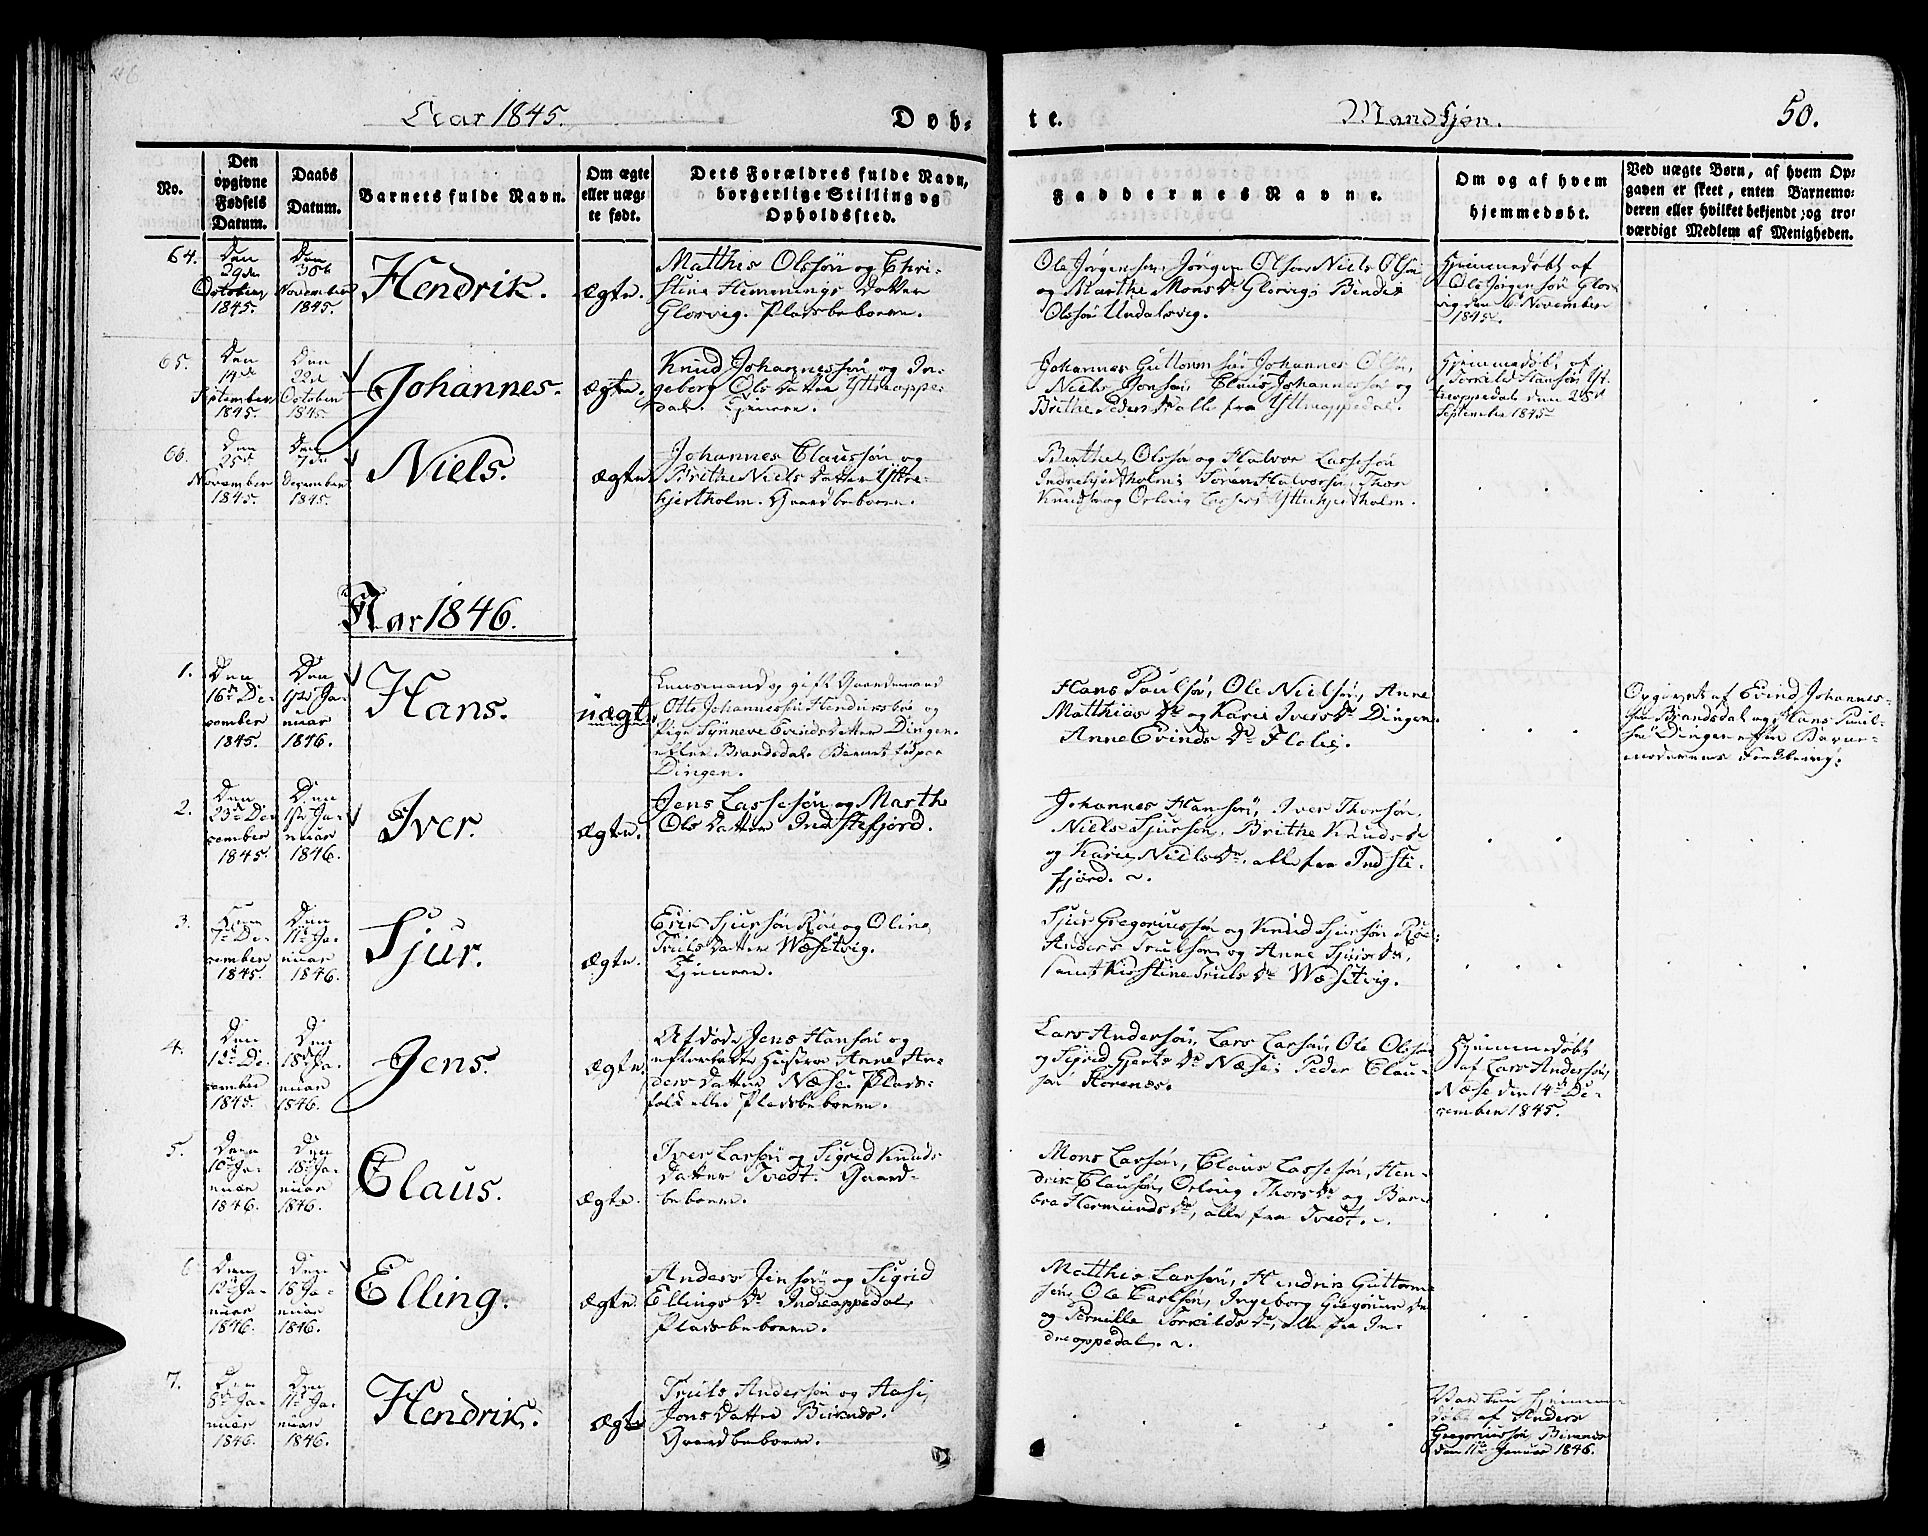 46
Aar 1845.
Døb-
te.
Mandkjøn.
50.
No.
Den
opgivne
Fødsels
Datum.
Daabs
Datum.
Barnets fulde Navn.
Om ægte
eller uæg-
te født.
Dets Forældres fulde Navn,
borgerlige Stilling og
Opholdssted.
Faddernes Navne.
Om og af hvem
hjemmedøbt.
Ved uægte Børn, af hvem Op-
gaven er skeet, enten Barnemo-
deren eller hvilket bekjendt, og tro-
værdigt Medlem af Menigheden.
64.
Den
29de
October
1845.
Den
30te
November
1845.
Hendrik.
ægte.
Matthis Olssøn og Chri-
stine Hemmings Datter
Glosvig. Pladsbeboere.
Ole Jørgensøn, Jørgen Olsøn, Niels Olsøn
og Marthe Monsdr Glosvig; Bendix
Olssøn Undalsvig.
Hjemmedøbt af
Ole Jørgensøn Glos-
vig den 6 November
1845.
65.
Den
14de
September
1845.
Den
22de
October
1845
Johannes.
ægte.
Knud Johannessøn og In-
geborg Ols Datter Yttreoppe-
dal.
Johannes Guttormsøn, Johannes Olsøn,
Niels Jonsøn, Claus Johannessøn og
Brithe Pedersdr alle fra Yttreoppedal.
Hjemmedøbt af
Torkild Hansøn Yt-
treoppedal den 28de
September 1845
66.
Den
25de
November
1845.
Den
7de
December
1845.
Niels.
ægte
Johannes Claussøn og
Brithe Niels Datter Yttre-
hjertholm. Gaardbeboere.
Berthel Olssøn og Halvor Lassesøn
Indrehjertholm; Søren Halvorsøn, Thor
Knudsøn og Oelrig Lassesdr Yttrehjertholm.
Aar 1846.
1.
Den
16de De-
cember
1845.
Den
1ste Ja-
nuar
1846.
Hans.
uægte
Leensmand og gift Gaardmand
Otto Johannessøn og
Pige Synneve Evinds Datter Dingen
eller Brandsdal. Barnet født paa
Dingen.
Hans Poulsøn, Ole Nielsøn, Anne
Matthiasdr og Karie Iversdr Dingen.
Anne Evindsdr Flolid.
Opgivet af Evind Johannes-
søn Brandsdal og Hans Poul-
søn Dingen efter Barne-
moderens
2.
Den
23de De-
cember
1845.
Den
1ste Ja-
nuar
1846.
Iver.
ægte.
Jens Lassesøn og Marthe
Ols Datter Indstefjord.
Johannes Hansøn, Iver Thorsøn,
Niels Sjursøn, Brithe Knudsdr
og Karie Nielsdr, alle fra Indste-
fjord.
3.
Den
7de De-
cember
1845.
Den
11te Ja-
nuar
1846.
Sjur.
ægte.
Erik Sjursøn Røe og Oline
Truls Datter Wæsetvig.
Sjur Gregoriussøn og Knud Sjursøn Røe;
Anders Trulsøn og Anne Sjursdr,
samt Kirstine Trulsdr Wæsetvig.
4.
Den
12te De-
cember
1845.
Den
18de Ja-
nuar
1846.
Jens.
ægte.
Afdøde Jens Hansøn og
efterladte Hustroe Anne An-
ders Datter Næse. Plads-
folk eller Pladsbeboere.
Lars Andersøn, Lars Larsøn, Ole Olssøn
og Sigrid Gjertsdr Næse; Peder Clau-
søn Storenæs.
Hjemmedøbt
af Lars Andersøn,
Næse den 14de De-
cember 1845.
5.
Den
10de Ja-
nuar
1846.
Den
18de Ja-
nuar
1846.
Claus.
ægte.
Iver Larsøn og Sigrid Knuds
Datter Tvedt. Gaard-
beboere.
Mons Larsøn, Claus Lassesøn, Hen-
drik Clausøn, Oelrig Thorsdr og Bar-
bra Hermundsdr, alle fra Tvedt.
6
Den
12te Ja-
nuar
1846.
Den
18de Ja-
nuar
1846.
Elling.
ægte.
Anders Jensøn og Sigrid
Ellings Dr Indreoppedal,
Pladsbeboere.
Matthis Larsøn, Hendrik Guttorm-
søn, Ole Carlsøn, Ingeborg Gregoriusdr
og Pernille Torkildsdr, alle fra In-
dreoppedal.
7.
Den
8de Ja-
nuar
1846.
Den
11te Ja-
nuar
1846.
Hendrik.
ægte
Truls Andersøn og Aase
Jons Datter Birknæs.
Gaardbeboere.
Var kun hjemme-
døbt af Anders
Gregoriussøn Birknæs
den 11te Januar 1846.